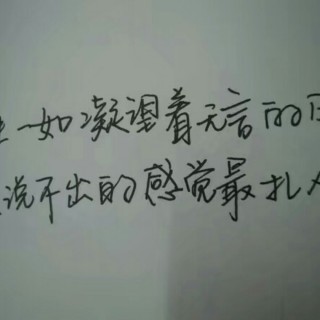 一如凝望着无言的
说不出的感觉最扎